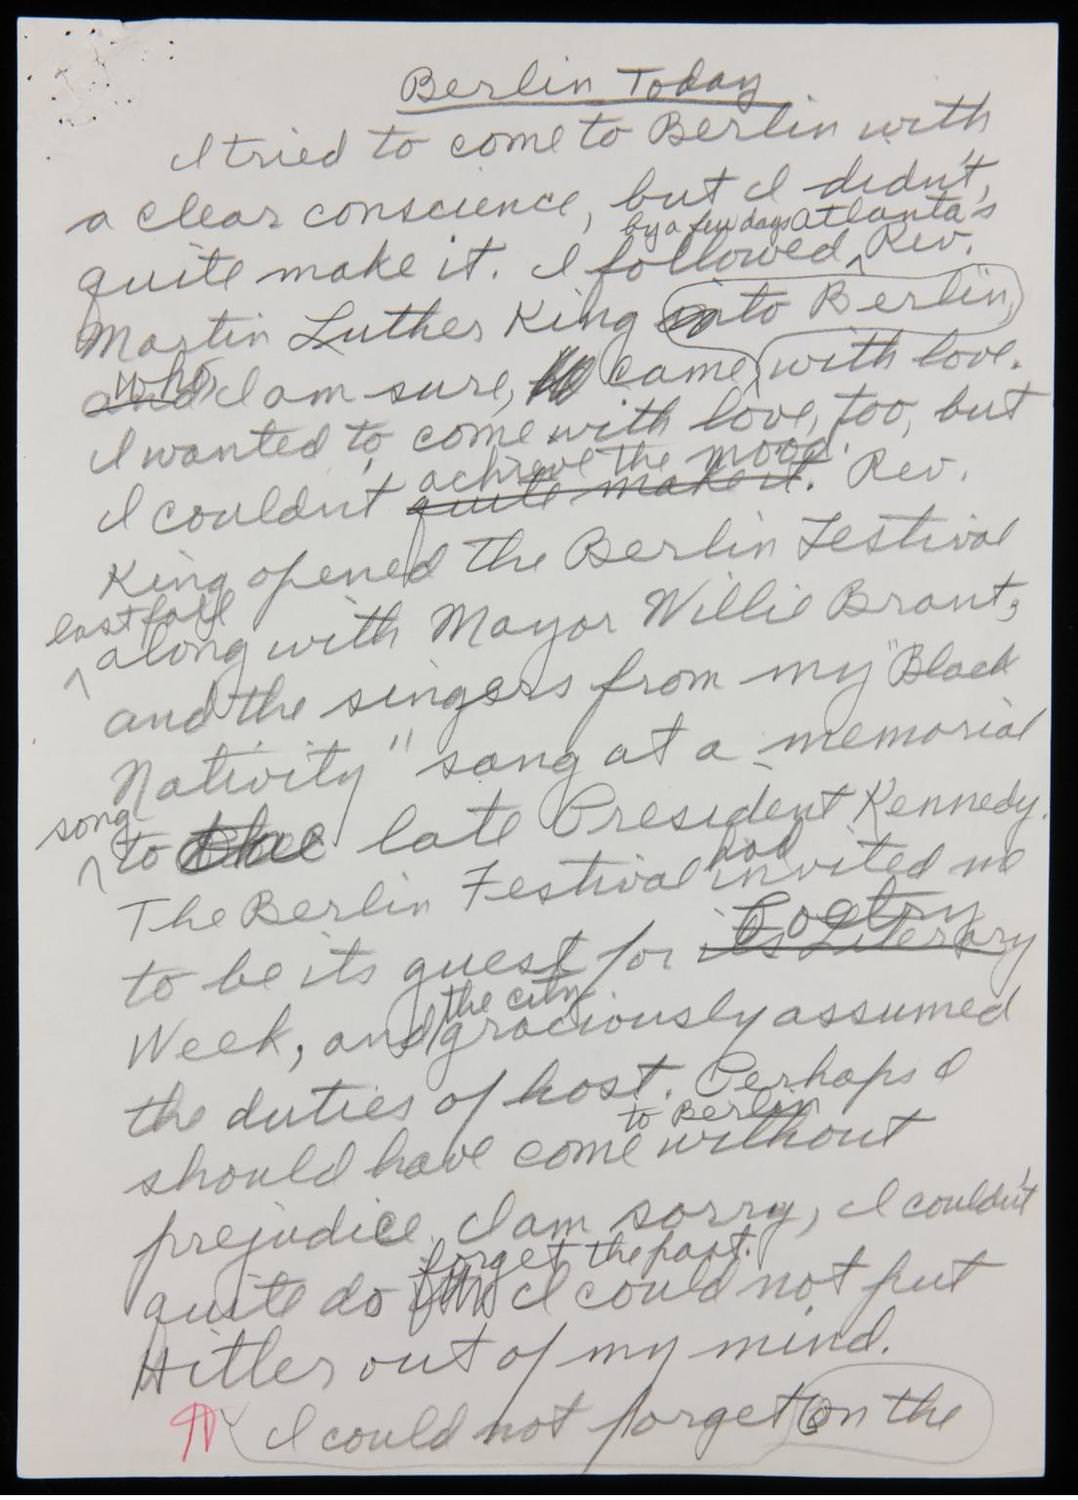 Berlin Today
I tried to come to Berlin with
a clear conscience, but I didn't,
by a few days Atlanta's
quite make it. I followed Rev.
Martin Luther King into Berlin,
who
and I am sure, came with love.
I wanted to come with love, too, but
achieve the mood.
I couldn't quite make it. Rev.
King opened the Berlin Festival
last fall
along with Mayor Willie Brant,
and the singers from my "Black
Nativity" sang at a memorial
song
to the late President Kennedy.
had
The Berlin Festival invited me
Poetry
to be its guest for its Literary
the city
Week, and graciously assumed
the duties of host. Perhaps I
to Berlin
should have come without
prejudice. I am sorry, I couldn't
forget the past.
quite do I could not put
Hitler out of my mind.
¶ I could not forget on the